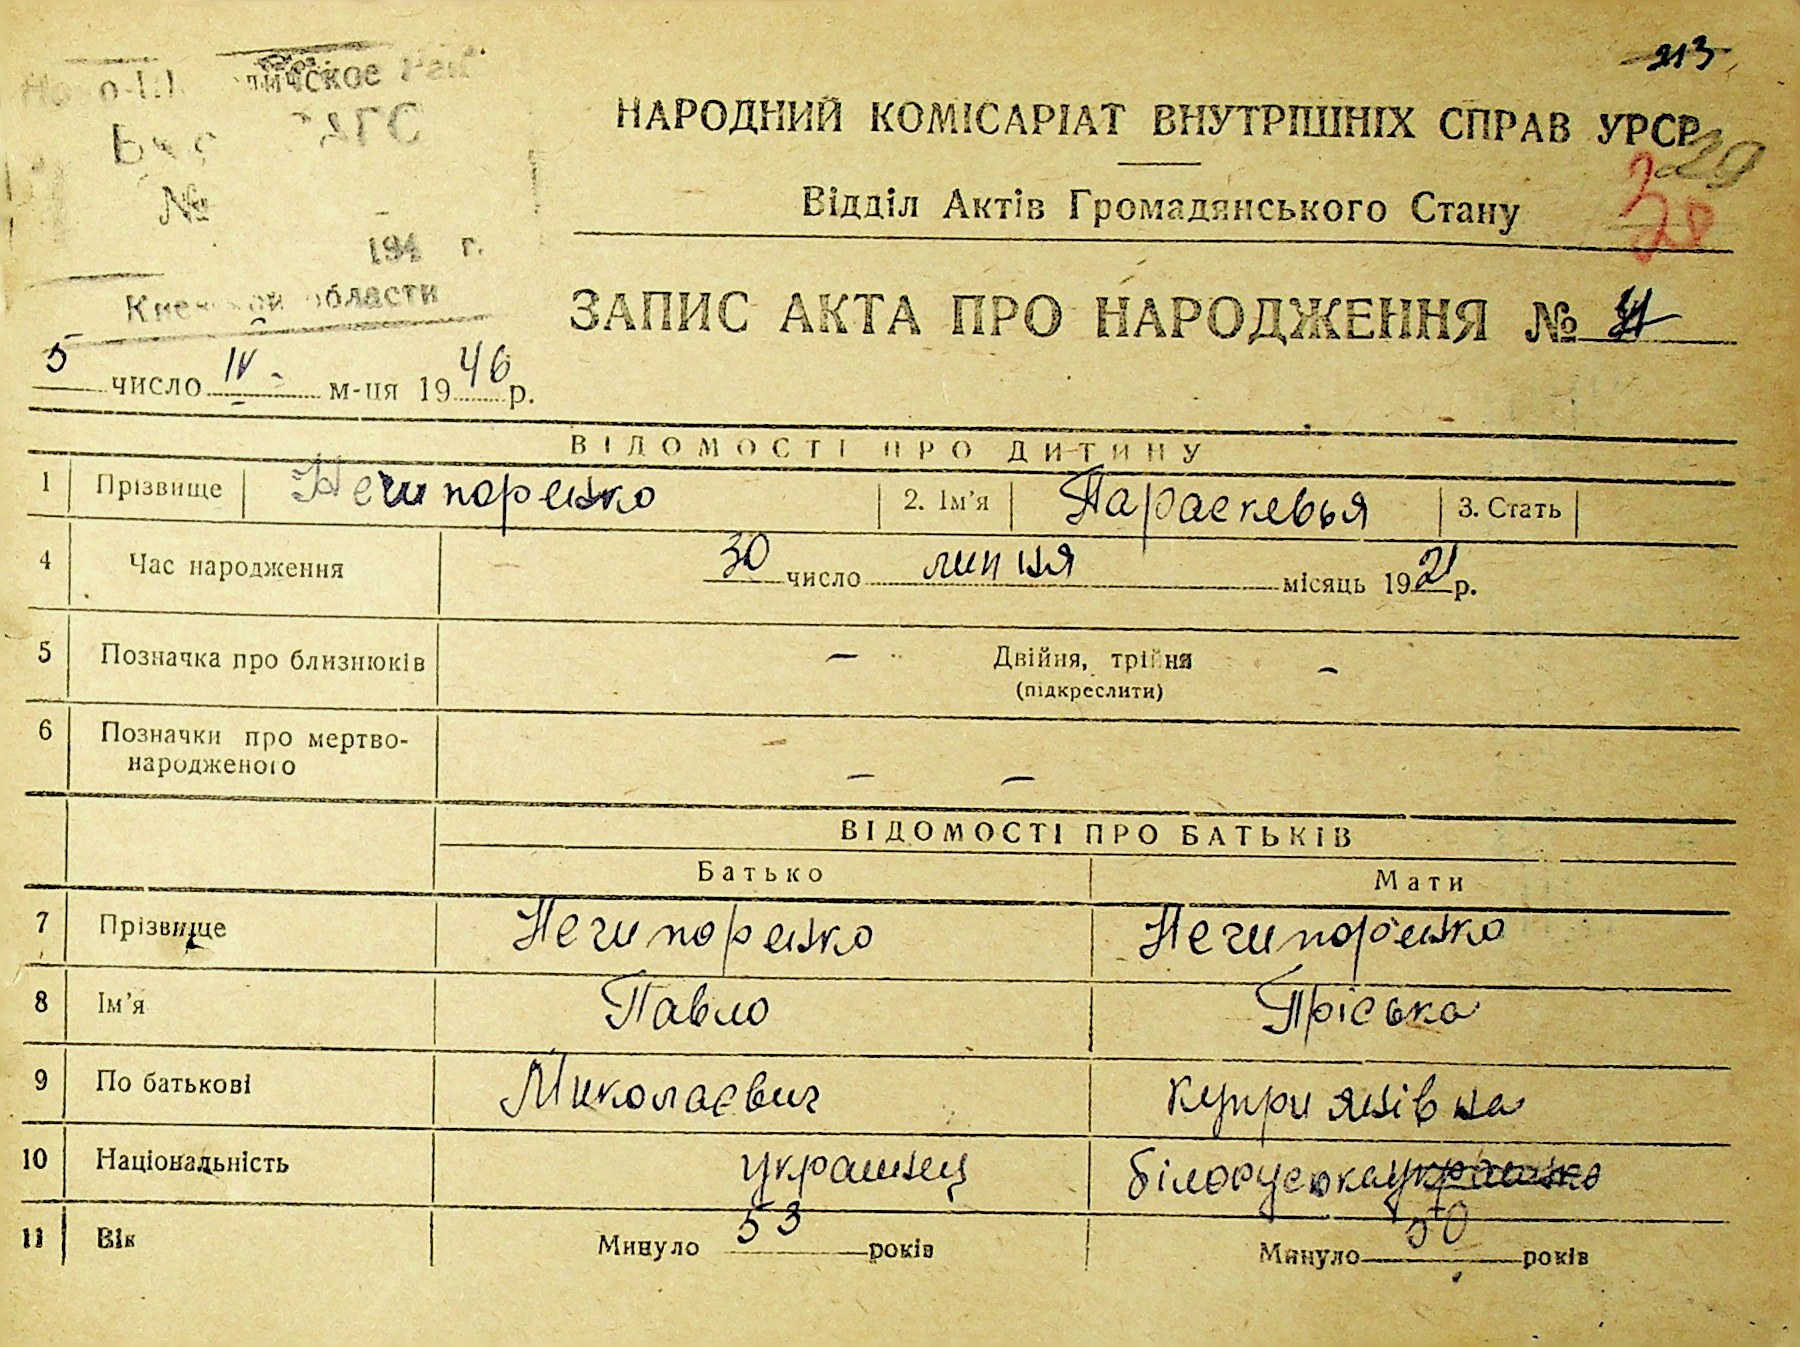 213
НАРОДНИЙ КОМІСАРІАТ ВНУТРІШНІХ СПРАВ УРСР
29
Відділ Актів Громадянського Стану
№
194 г.
области
ЗАПИС АКТА ПРО НАРОДЖЕННЯ №
5 число IV м-ця 1946 р.
ВІДОМОСТІ ПРО ДИТИНУ
1 Прізвище Нечипоренко 2. Ім'я Параскевья 3. Стать
4 Час народження 30 число липня місяць 1921 р.
5 Позначка про близнюків — Двійня, трійня —
(підкреслити)
6 Позначки про мертво-
народженого — —
ВІДОМОСТІ ПРО БАТЬКІВ
Батько Мати
7 Прізвище Нечипоренко Нечипоренко
8 Ім'я Павло Пріська
9 По батькові Миколаєвич Куприянівна
10 Національність украинец білоруська
11 Вік Минуло 53 років Минуло 50 років